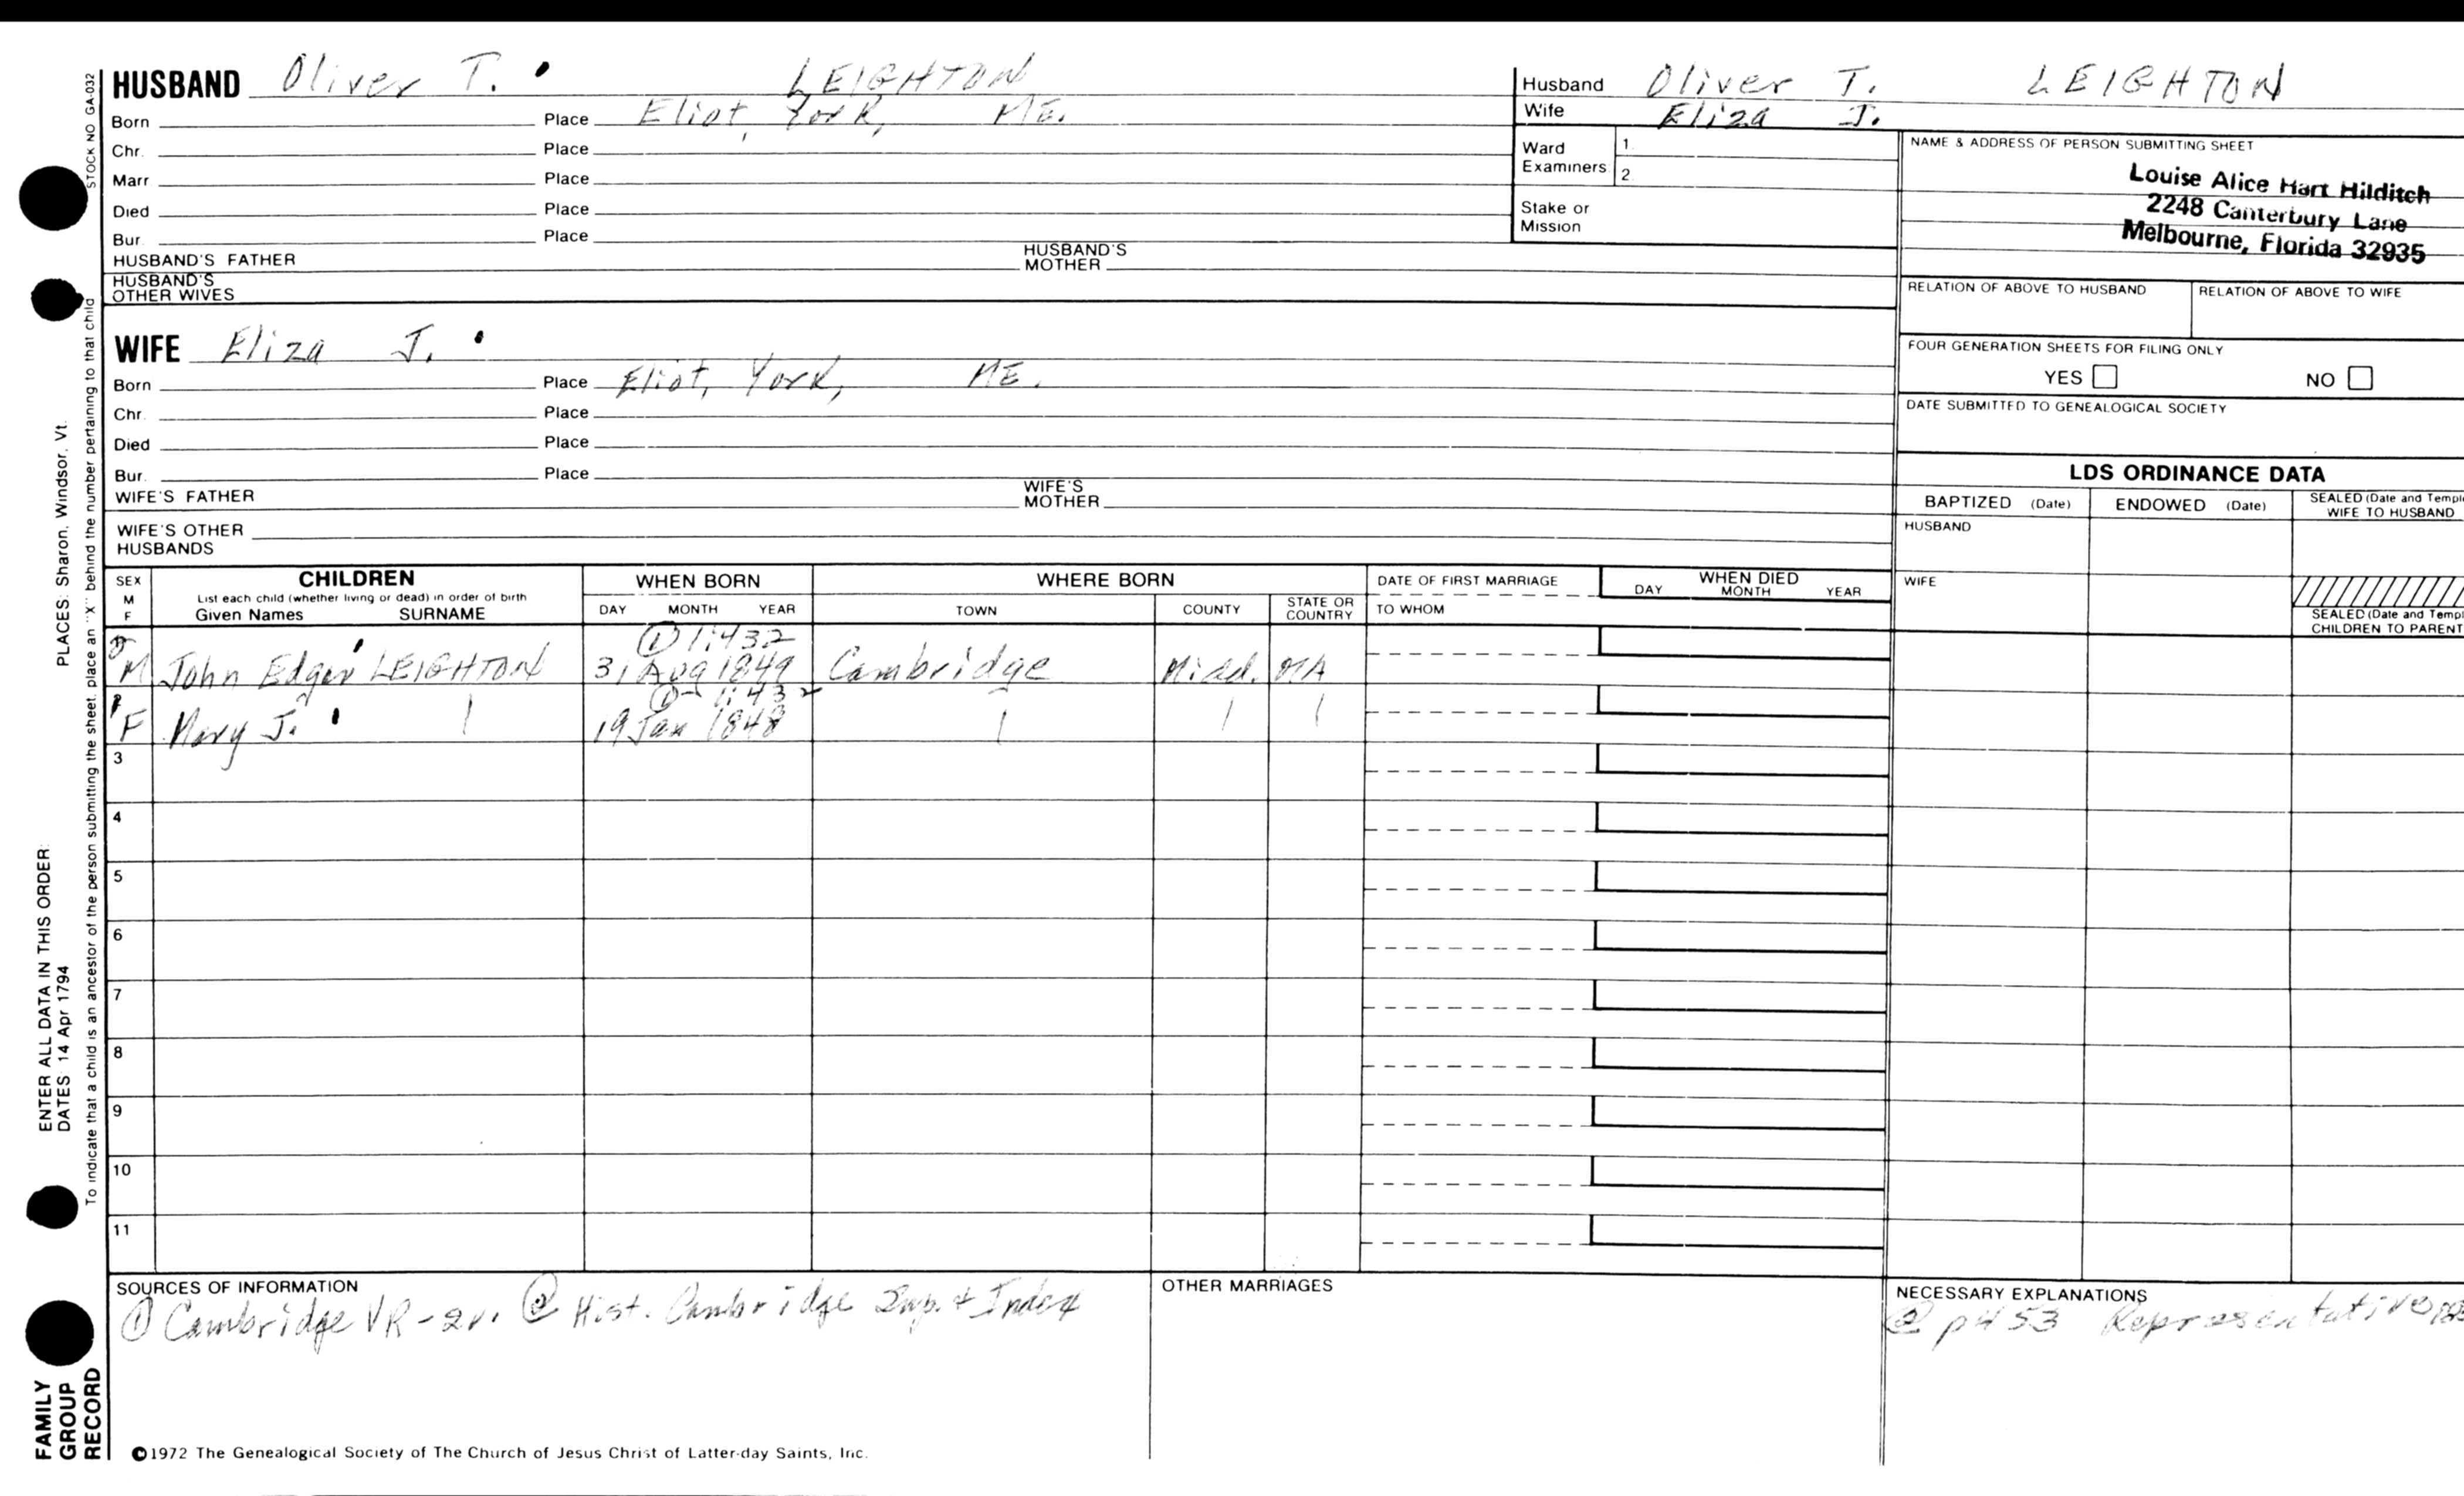 HUSBAND Oliver T. LEIGHTON
Born Place Eliot, York, ME.
Chr. Place
Marr Place
Died Place
Bur. Place
HUSBAND'S FATHER HUSBAND'S MOTHER
HUSBAND'S OTHER WIVES
Husband Oliver T. LEIGHTON
Wife Eliza J.
Ward Examiners 1. 2.
Stake or Mission
NAME & ADDRESS OF PERSON SUBMITTING SHEET
Louise Alice Hart Hilditch
2248 Canterbury Lane
Melbourne, Florida 32935
RELATION OF ABOVE TO HUSBAND RELATION OF ABOVE TO WIFE
WIFE Eliza J.
Born Place Eliot, York, ME.
Chr. Place
Died Place
Bur. Place
WIFE'S FATHER WIFE'S MOTHER
WIFE'S OTHER HUSBANDS
FOUR GENERATION SHEETS FOR FILING ONLY
YES NO
DATE SUBMITTED TO GENEALOGICAL SOCIETY
LDS ORDINANCE DATA
BAPTIZED (Date) ENDOWED (Date) SEALED (Date and Templ
WIFE TO HUSBAND
HUSBAND
WIFE
SEALED (Date and Templ
CHILDREN TO PARENT
SEX M F
CHILDREN
List each child (whether living or dead) in order of birth
Given Names SURNAME
WHEN BORN
DAY MONTH YEAR
WHERE BORN
TOWN COUNTY STATE OR COUNTRY
DATE OF FIRST MARRIAGE
TO WHOM
WHEN DIED
DAY MONTH YEAR
① 1:432
2 M John Edgar LEIGHTON 31 Aug 1849 Cambridge Midd. MA
①- 1:432
1 F Mary J. 19 Jan 1848
3
4
5
6
7
8
9
10
11
SOURCES OF INFORMATION
① Cambridge VR-2v. ② Hist. Cambridge Sup. + Index
OTHER MARRIAGES
NECESSARY EXPLANATIONS
② p453 Representative
©1972 The Genealogical Society of The Church of Jesus Christ of Latter-day Saints, Inc.
STOCK NO GA-032
To indicate that a child is an ancestor of the person submitting the sheet, place an "X" behind the number pertaining to that child
PLACES: Sharon, Windsor, Vt.
ENTER ALL DATA IN THIS ORDER:
DATES 14 Apr 1794
FAMILY
GROUP
RECORD